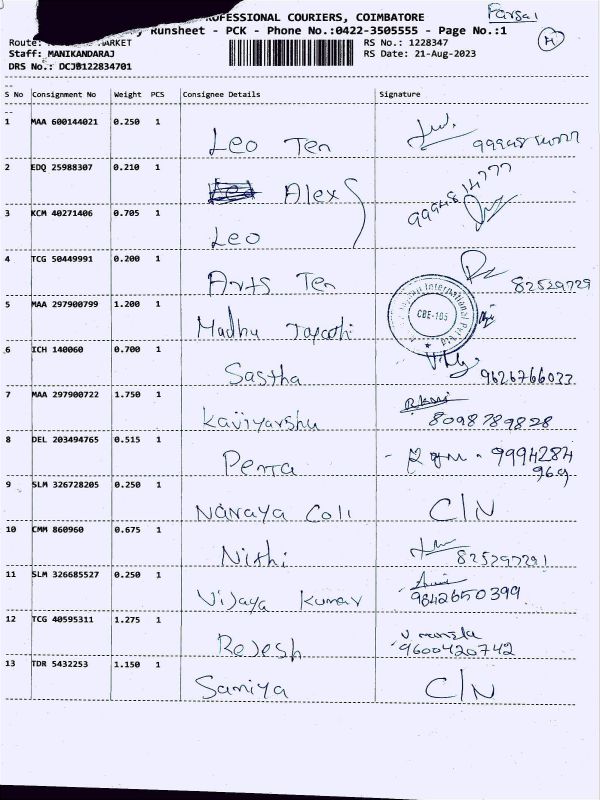 PROFESSIONAL COURIERS, COIMBATORE
Farsal
Runsheet - PCK - Phone No.:0422-3505555 - Page No.:1
Route: MARKET RS No.: 1228347
Staff: MANIKANDARAJ RS Date: 21-Aug-2023
DRS No.: DCJB122834701
S No Consignment No Weight PCS Consignee Details Signature
1 MAA 600144021 0.250 1 Leo Ten
2 EDQ 25988307 0.210 1 Alex 9994814777
3 KCM 40271406 0.705 1 Leo
4 TCG 50449991 0.200 1 Arts Ten 82529729
5 MAA 297900799 1.200 1 Madhu International Pvt Ltd CBE-105
6 ICH 140060 0.700 1 Sastha 9626766033
7 MAA 297900722 1.750 1 Kaviyarshu 8098789828
8 DEL 203494765 0.515 1 Penta 9994284
969
9 SLM 326728205 0.250 1 Naraya Coli C/N
10 CMM 860960 0.675 1 Nithi
11 SLM 326685527 0.250 1 Vijaya Kumar 9842650399
12 TCG 40595311 1.275 1 Rejesh 9600420742
13 TDR 5432253 1.150 1 Saniya C/N